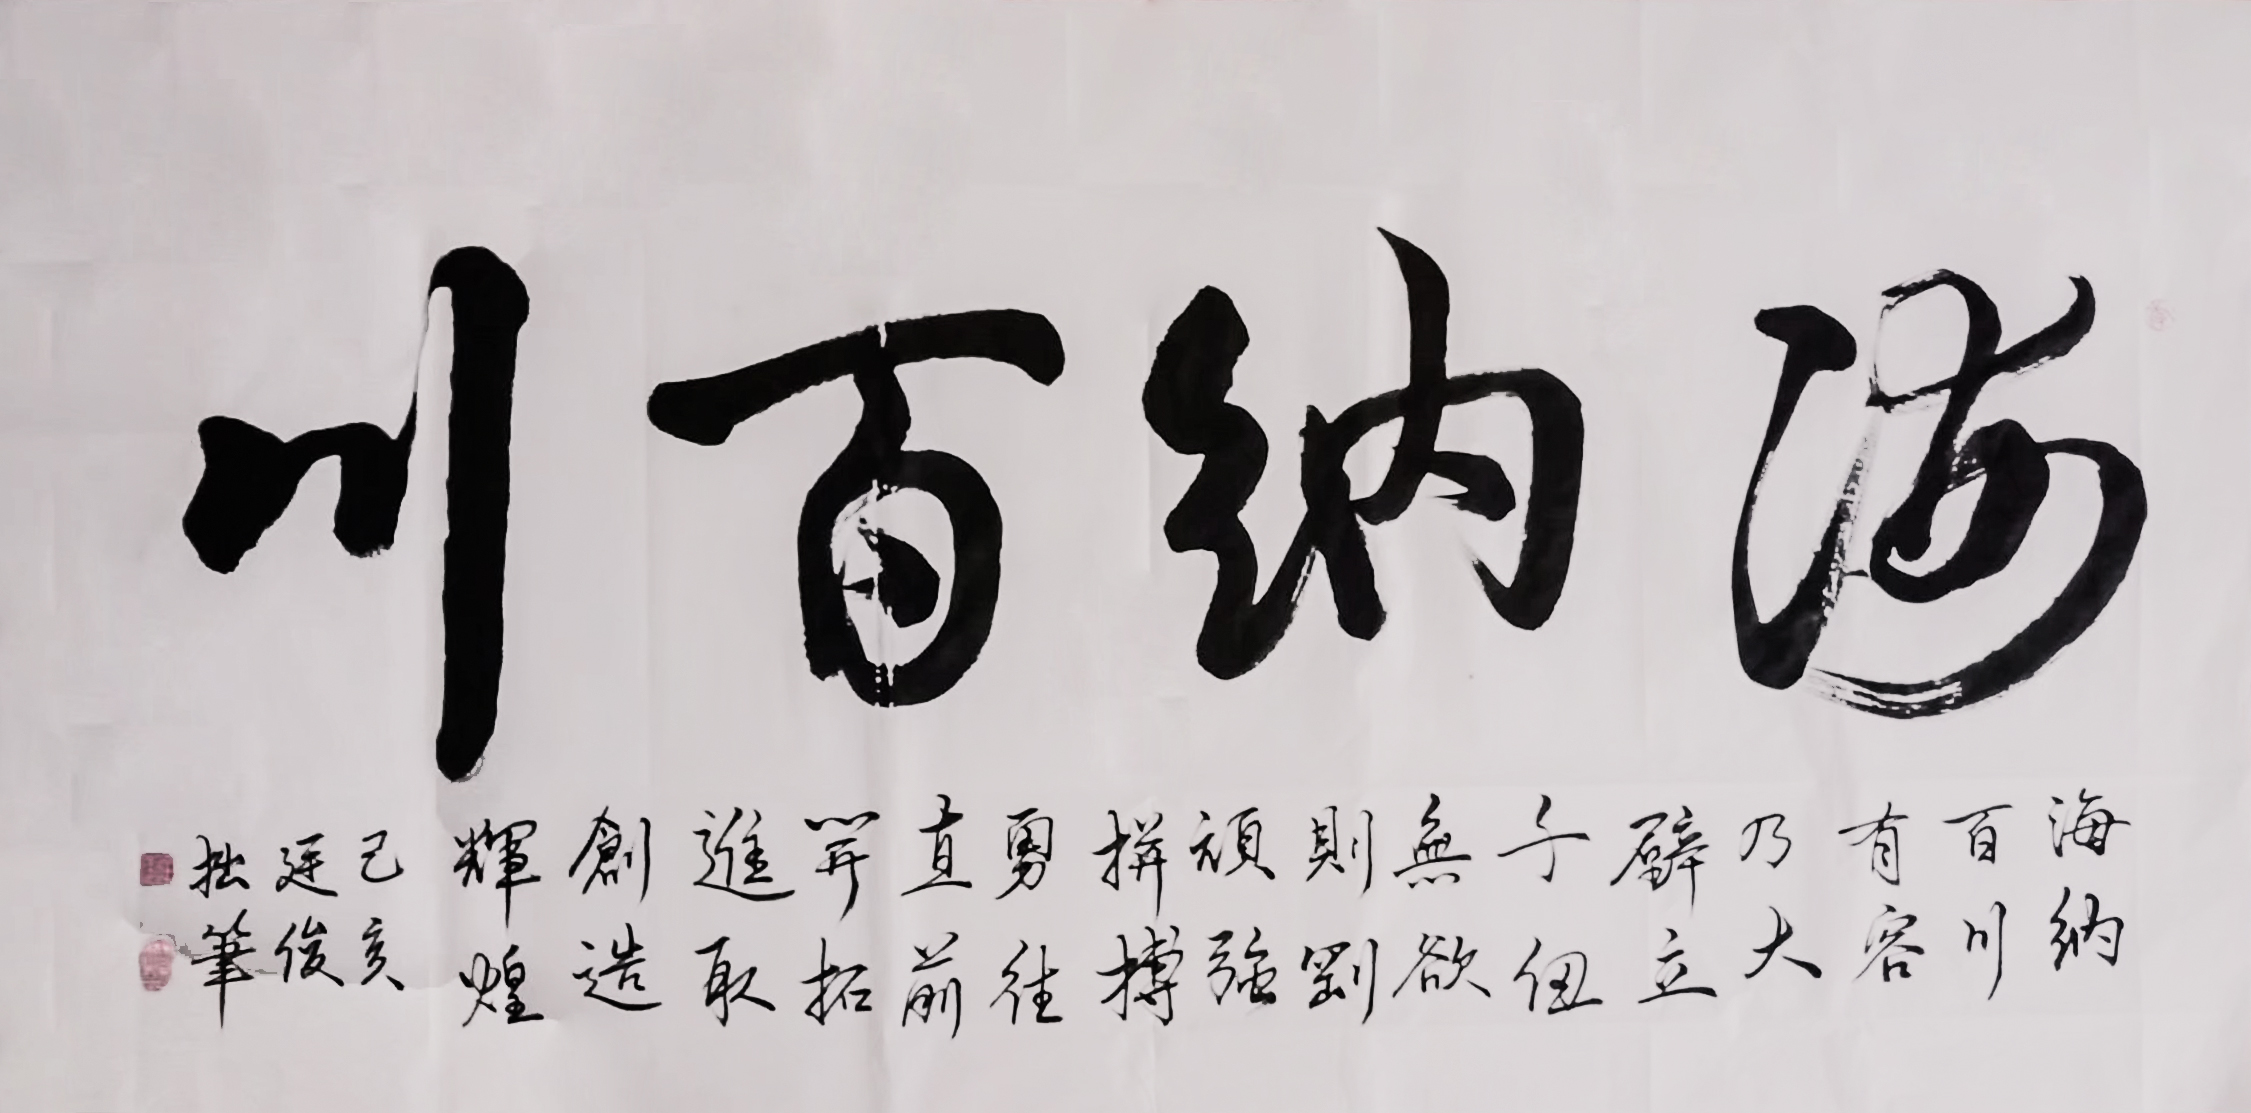 海納百川
海納
百川
有容
乃大
壁立
千仞
無欲
則劉
頑強
拼搏
勇往
直前
開拓
進取
創造
輝煌
己亥
廷俊
拙筆